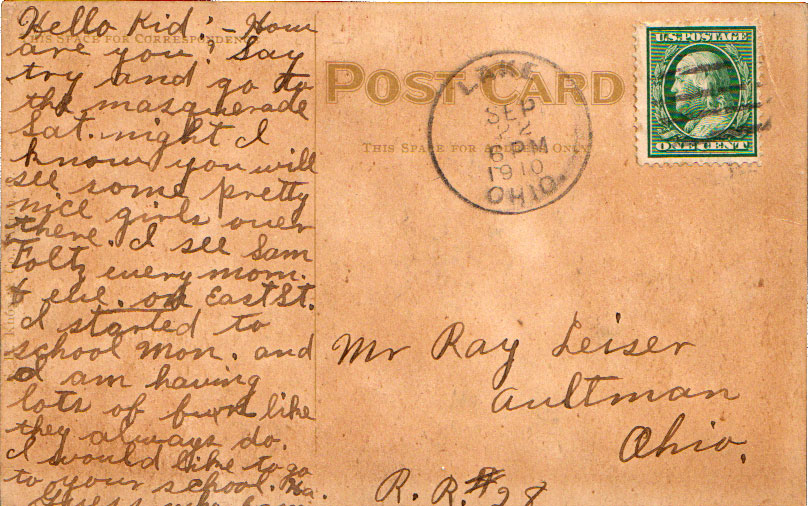 Hello Kid:- How
THIS SPACE FOR CORRESPONDENCE
are you? Say
try and go to
the masquerade
Sat. night I
know you will
see some pretty
nice girls over
there. I see Sam
Foltz every morn.
& eve. on East St.
I started to
school Mon. and
I am having
lots of fun like
they always do.
I would like to go
to your school. Ha.
Guess who I am
POST CARD
THIS SPACE FOR ADDRESS ONLY
LAKE
SEP
22
6 PM
1910
OHIO.
U.S. POSTAGE
ONE CENT
Mr Ray Leiser
Aultman
Ohio.
R. R. #28